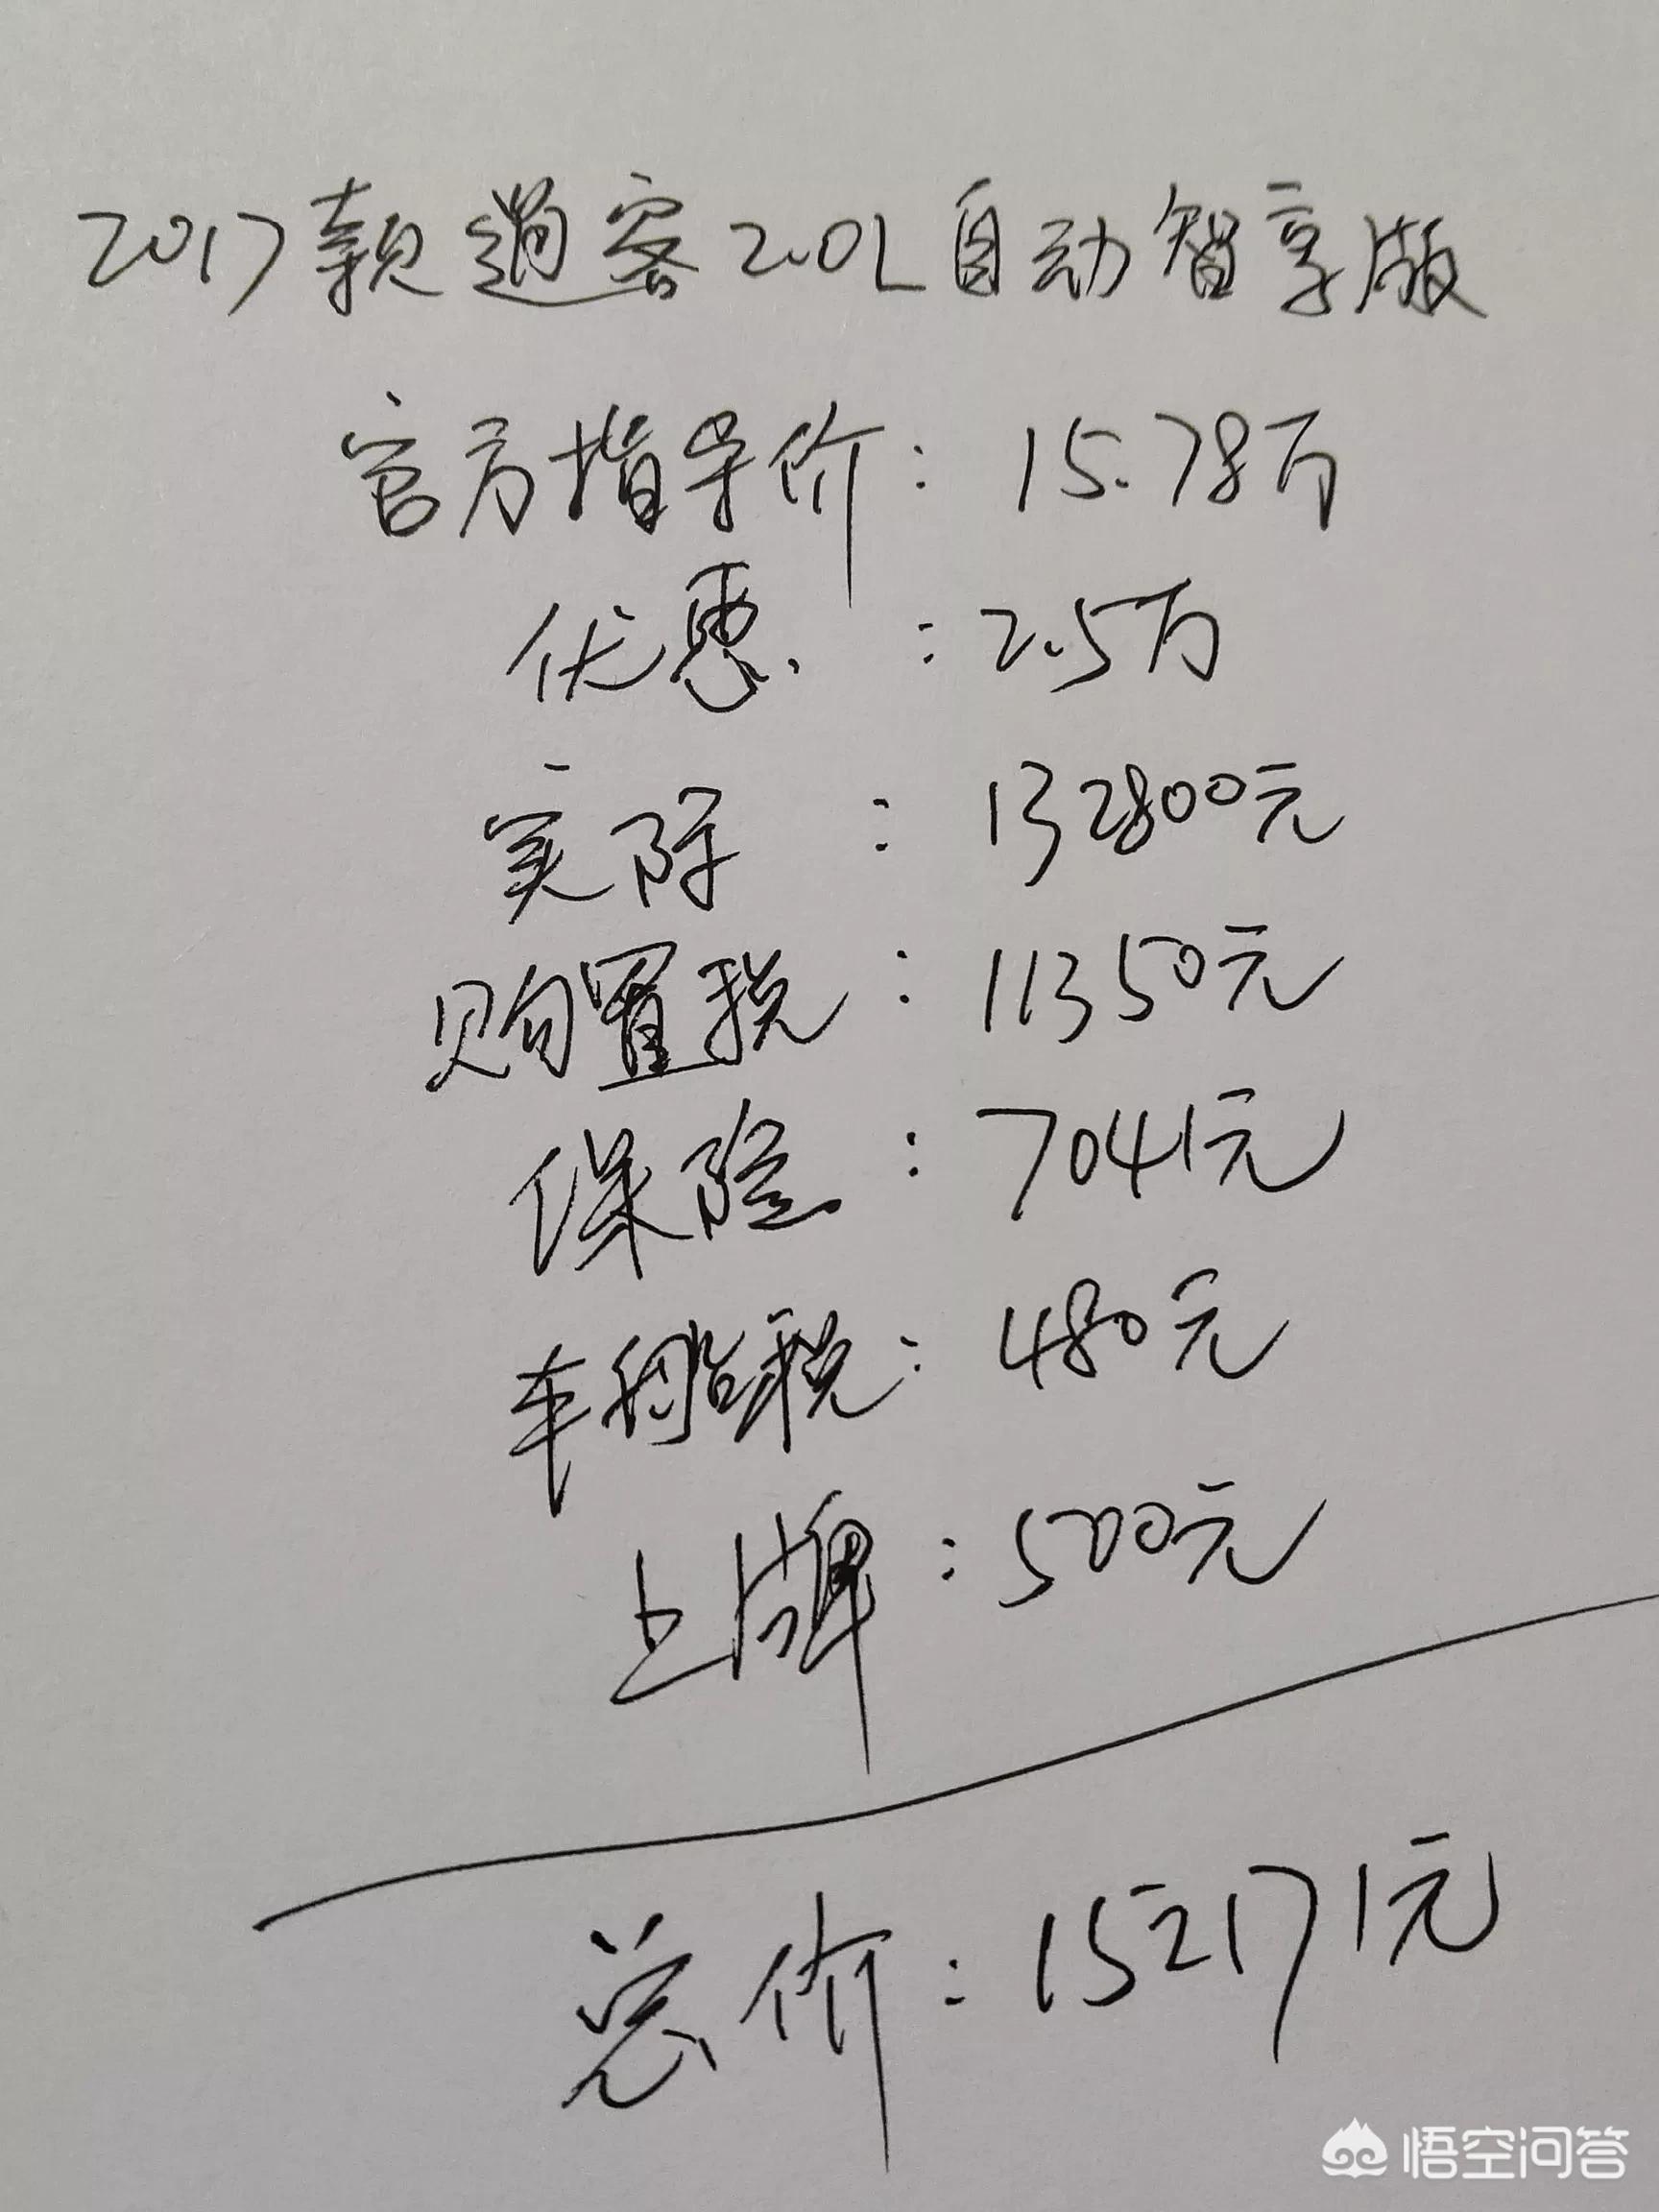 2017款逍客2.0L自动智享版
官方指导价：15.78万
优惠：2.5万
实际：132800元
购置税：11350元
保险：7041元
车船税：480元
上牌：500元
总价：152171元
悟空问答